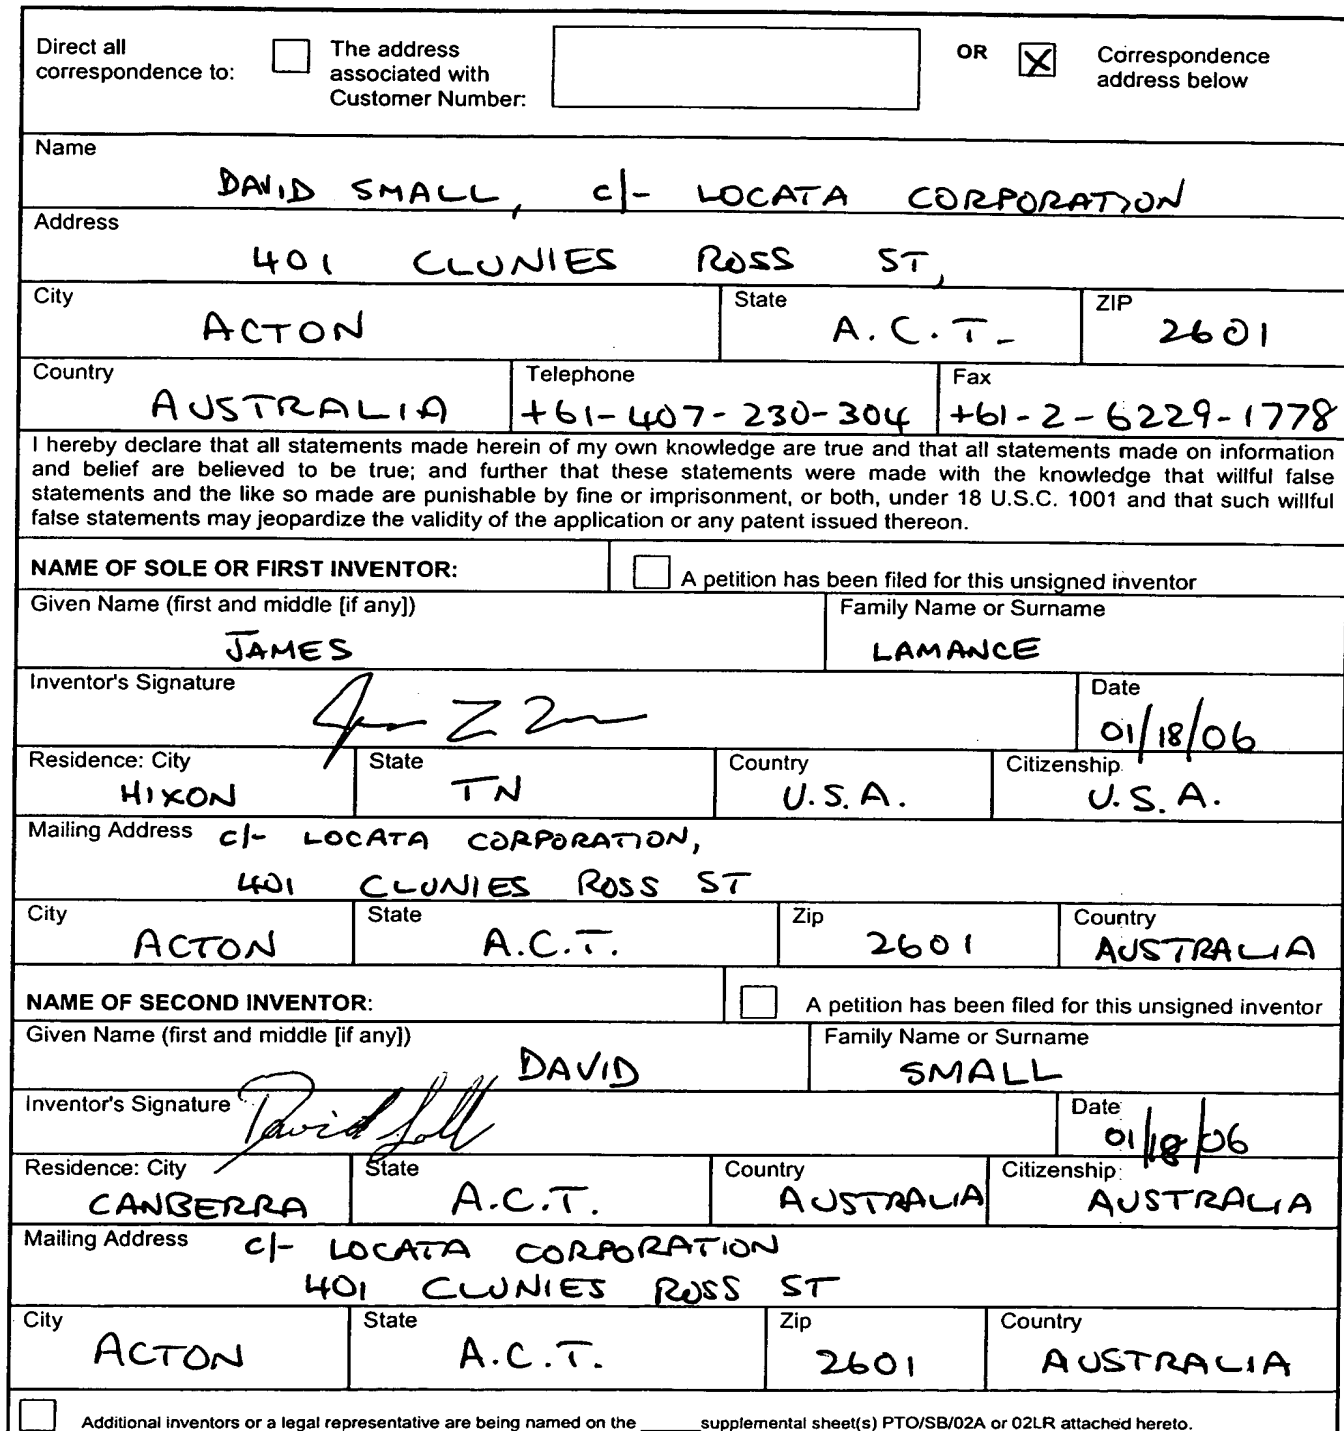 Direct all The address OR X Correspondence
correspondence to: associated with address below
Customer Number:
Name
DAVID SMALL, c/- LOCATA CORPORATION
Address
401 CLUNIES ROSS ST,
City State ZIP
ACTON A.C.T. 2601
Country Telephone Fax
AUSTRALIA +61-407-230-304 +61-2-6229-1778
I hereby declare that all statements made herein of my own knowledge are true and that all statements made on information
and belief are believed to be true; and further that these statements were made with the knowledge that willful false
statements and the like so made are punishable by fine or imprisonment, or both, under 18 U.S.C. 1001 and that such willful
false statements may jeopardize the validity of the application or any patent issued thereon.
NAME OF SOLE OR FIRST INVENTOR: A petition has been filed for this unsigned inventor
Given Name (first and middle [if any]) Family Name or Surname
JAMES LAMANCE
Inventor's Signature Date
01/18/06
Residence: City State Country Citizenship
HIXON TN U.S.A. U.S.A.
Mailing Address c/- LOCATA CORPORATION,
401 CLUNIES ROSS ST
City State Zip Country
ACTON A.C.T. 2601 AUSTRALIA
NAME OF SECOND INVENTOR: A petition has been filed for this unsigned inventor
Given Name (first and middle [if any]) Family Name or Surname
DAVID SMALL
Inventor's Signature David Date
01/18/06
Residence: City State Country Citizenship
CANBERRA A.C.T. AUSTRALIA AUSTRALIA
Mailing Address c/- LOCATA CORPORATION
401 CLUNIES ROSS ST
City State Zip Country
ACTON A.C.T. 2601 AUSTRALIA
Additional inventors or a legal representative are being named on the ______supplemental sheet(s) PTO/SB/02A or 02LR attached hereto.